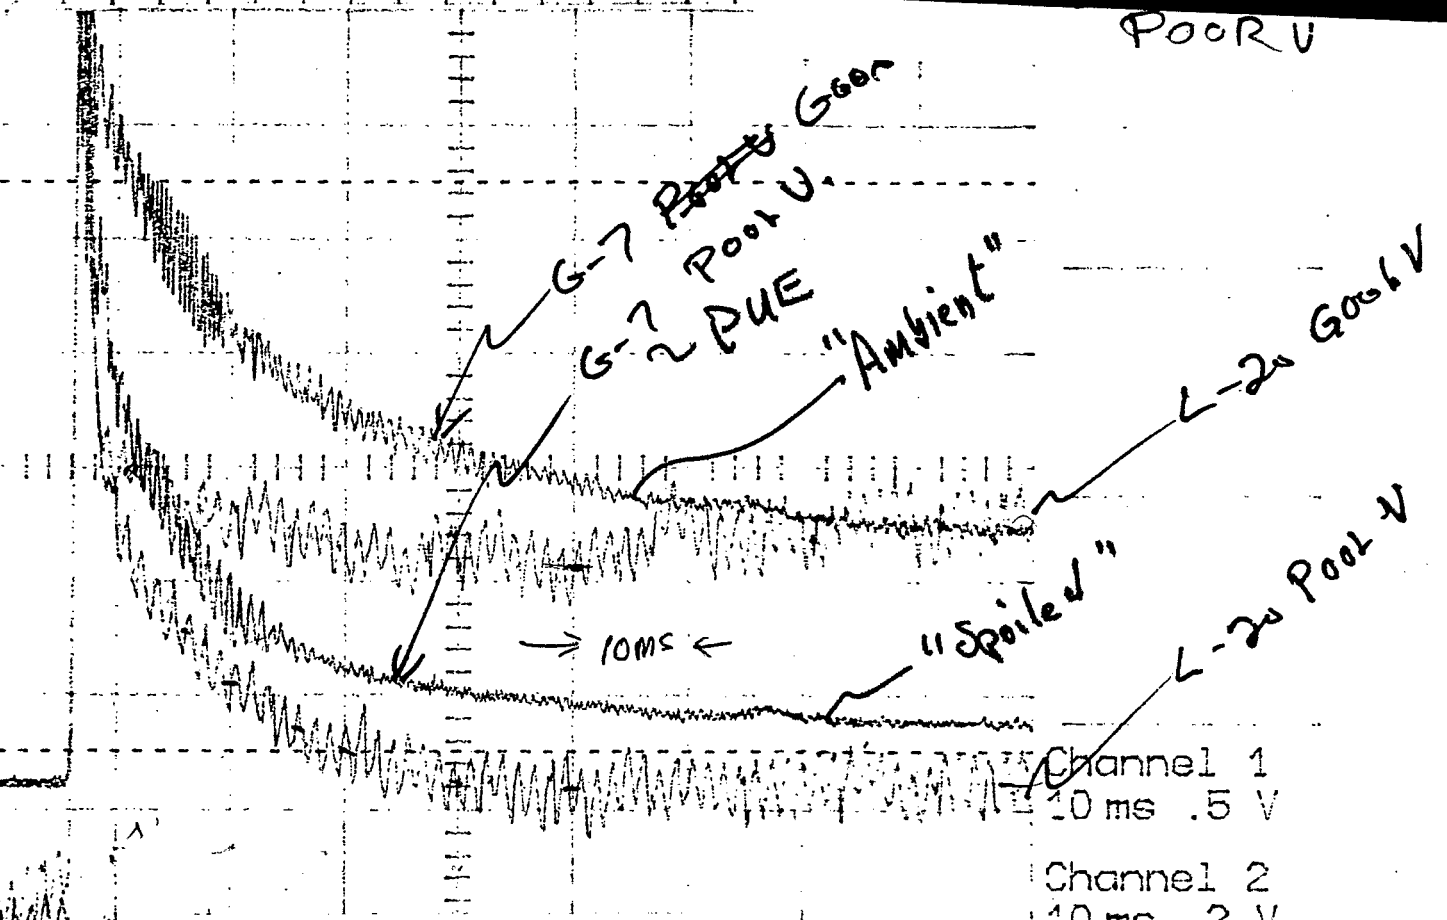 POOR V
G-7 Poor V Goor
G-7 Poor V.
~ PUE
"Ambient"
L-20 Good V
→ 10MS ←
"Spoiled"
L-20 Poor V
Channel 1
10 ms .5 V
Channel 2
10 ms .2 V